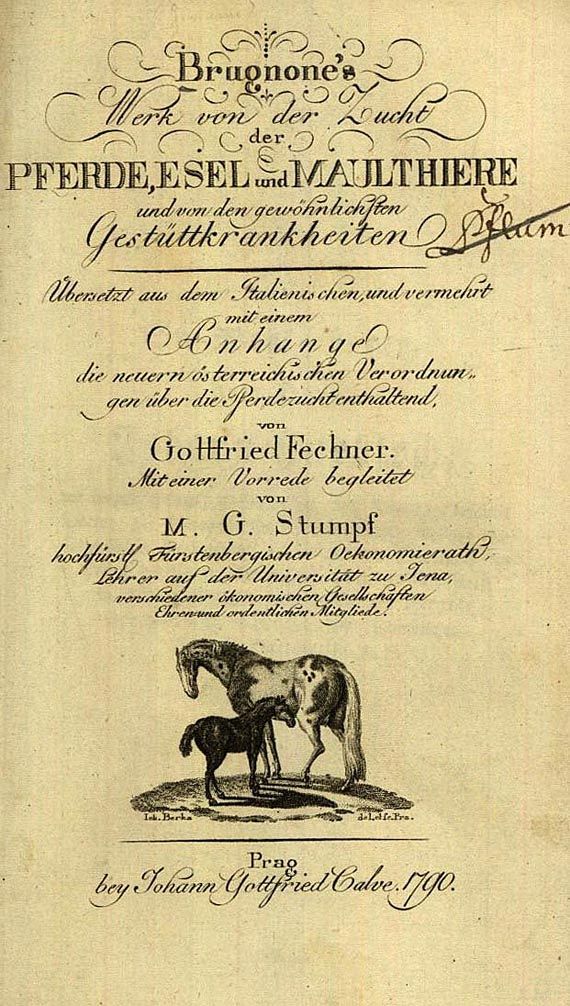 Brugnone's
Werk von der Zucht
der
PFERDE, ESEL und MAULTHIERE
und von den gewöhnlichsten
Gestüttkrankheiten
Pflum
Übersetzt aus dem Italienischen, und vermehrt
mit einem
Anhange
die neuern österreichischen Verordnun„
gen über die Pferdezucht enthaltend,
von
Gottfried Fechner.
Mit einer Vorrede begleitet
von
M. G. Stumpf
hochfürstl Fürstenbergischen Oekonomierath,
Lehrer auf der Universität zu Jena,
verschiedener ökonomischen Gesellschaften
Ehren und ordentlichen Mitgliede.
Joh. Berka del. et sc. Pra.
Prag
bey Johann Gottfried Calve. 1790.